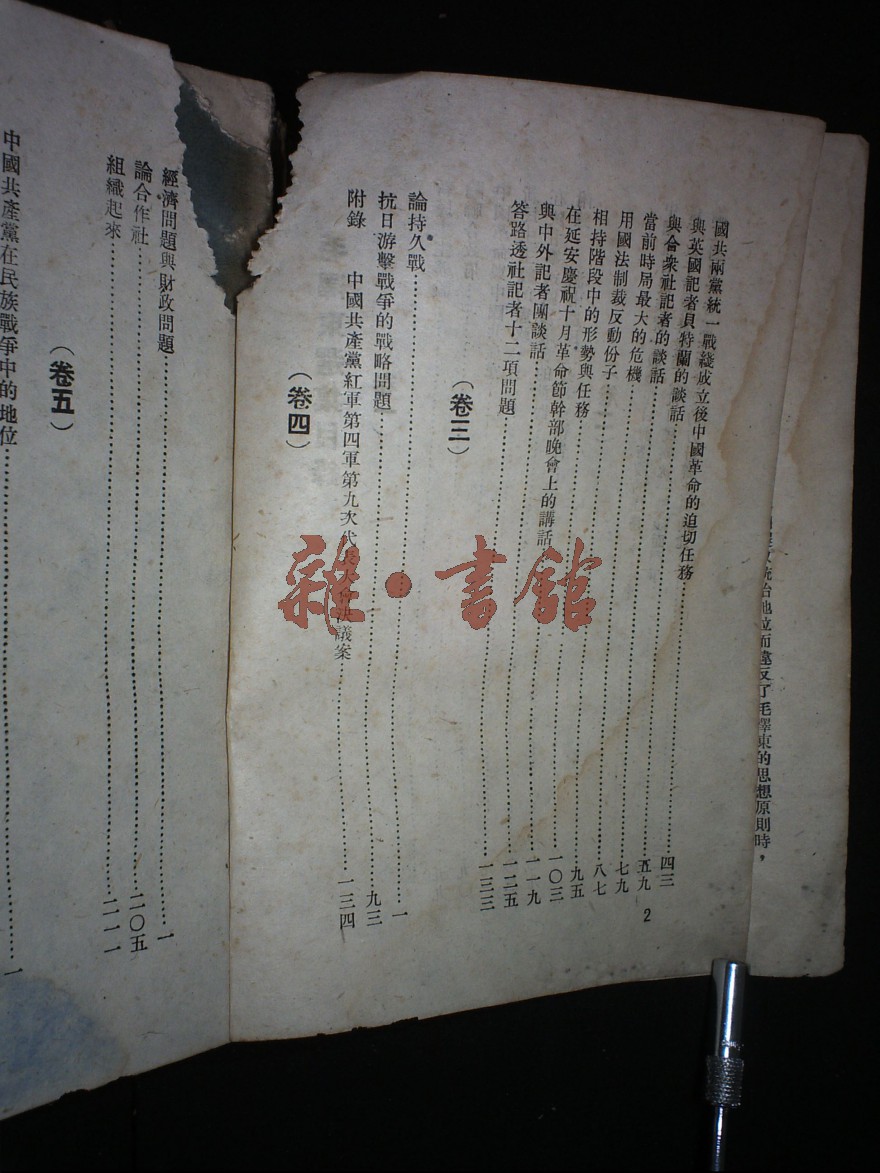 統治地位而違反了毛澤東的思想原則時，
國共兩黨統一戰綫成立後中國革命的迫切任務……四三
與英國記者貝特蘭的談話……五九
與合衆社記者的談話……七九
當前時局最大的危機……八七
用國法制裁反動份子……九五
相持階段中的形勢與任務……一〇三
在延安慶祝十月革命節幹部晚會上的講話……一一九
與中外記者團談話……一二五
答路透社記者十二項問題……一三三
2
（卷三）
論持久戰……一
抗日游擊戰爭的戰略問題……九三
附錄 中國共產黨紅軍第四軍第九次代表大會決議案……一三四
（卷四）
經濟問題與財政問題……一
論合作社……二〇五
組織起來……二一一
（卷五）
中國共產黨在民族戰爭中的地位……一
雜·書館